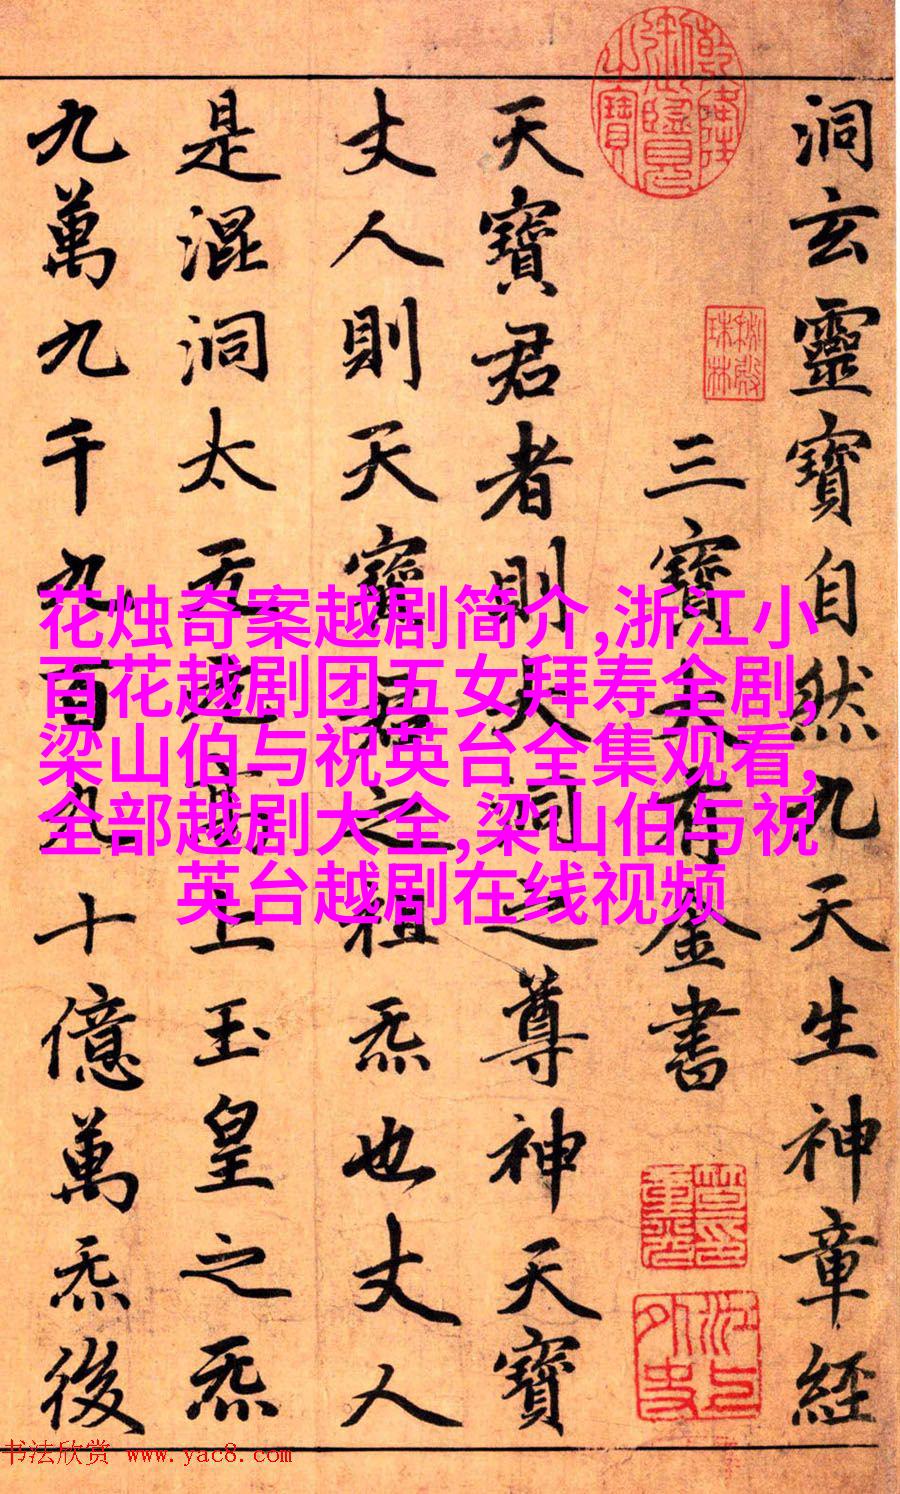 洞玄靈寶自然九天生神章經
三寶大有金書
天寶君者則大洞之尊神天寶
丈人則天寶君之祖炁也丈人
是混洞太无高上玉皇之炁
九萬九千九百九十億萬炁後
秘殿珠林
江上外史
花烛奇案越剧简介,浙江小
百花越剧团五女拜寿全剧,
梁山伯与祝英台全集观看,
全部越剧大全,梁山伯与祝
英台越剧在线视频
书法欣赏 www.yac8.com